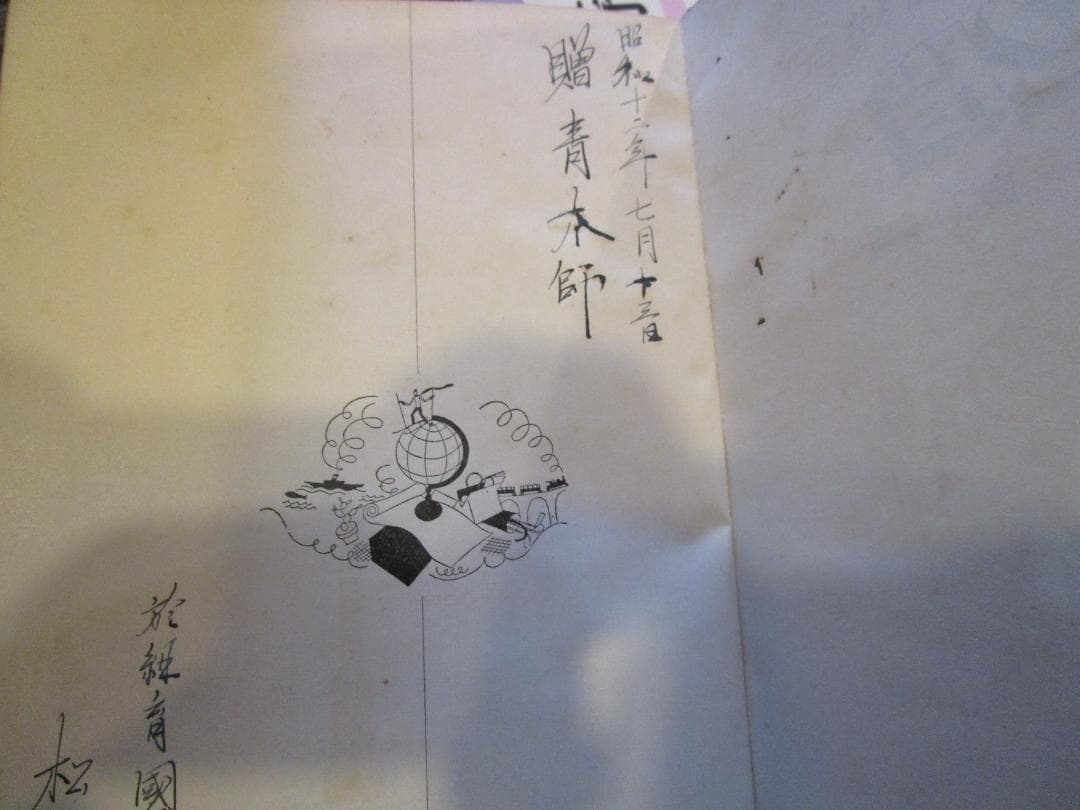 昭和十二年七月十三日
贈青木師
於育國
松